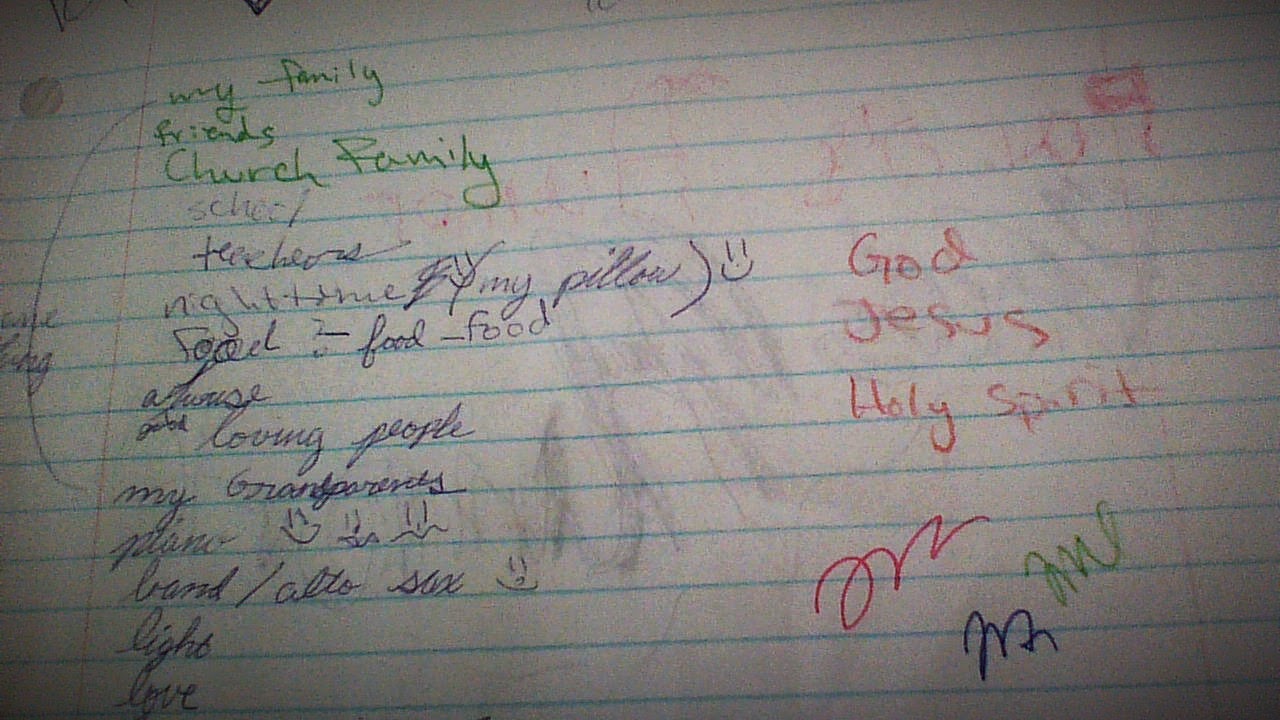 my family
friends
Church Family
school
teachers
nighttime (my pillow)
Food :- food - food
a house
loving people
my Grandparents
piano
band / alto sax
light
love
God
Jesus
Holy Spirit